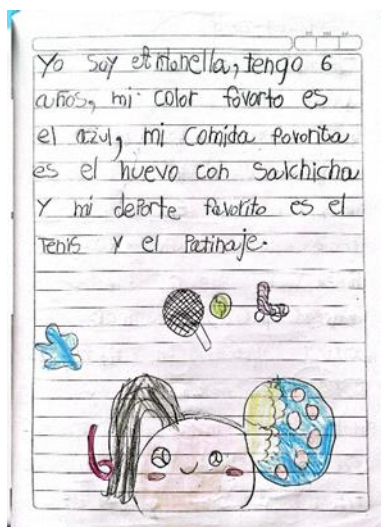 Yo Soy etMonella, tengo 6
años, mi color favorto es
el azul, mi Comida favorita
es el huevo con Salchicha
Y mi deporte favorito es el
Tenis Y el Patinaje.
6